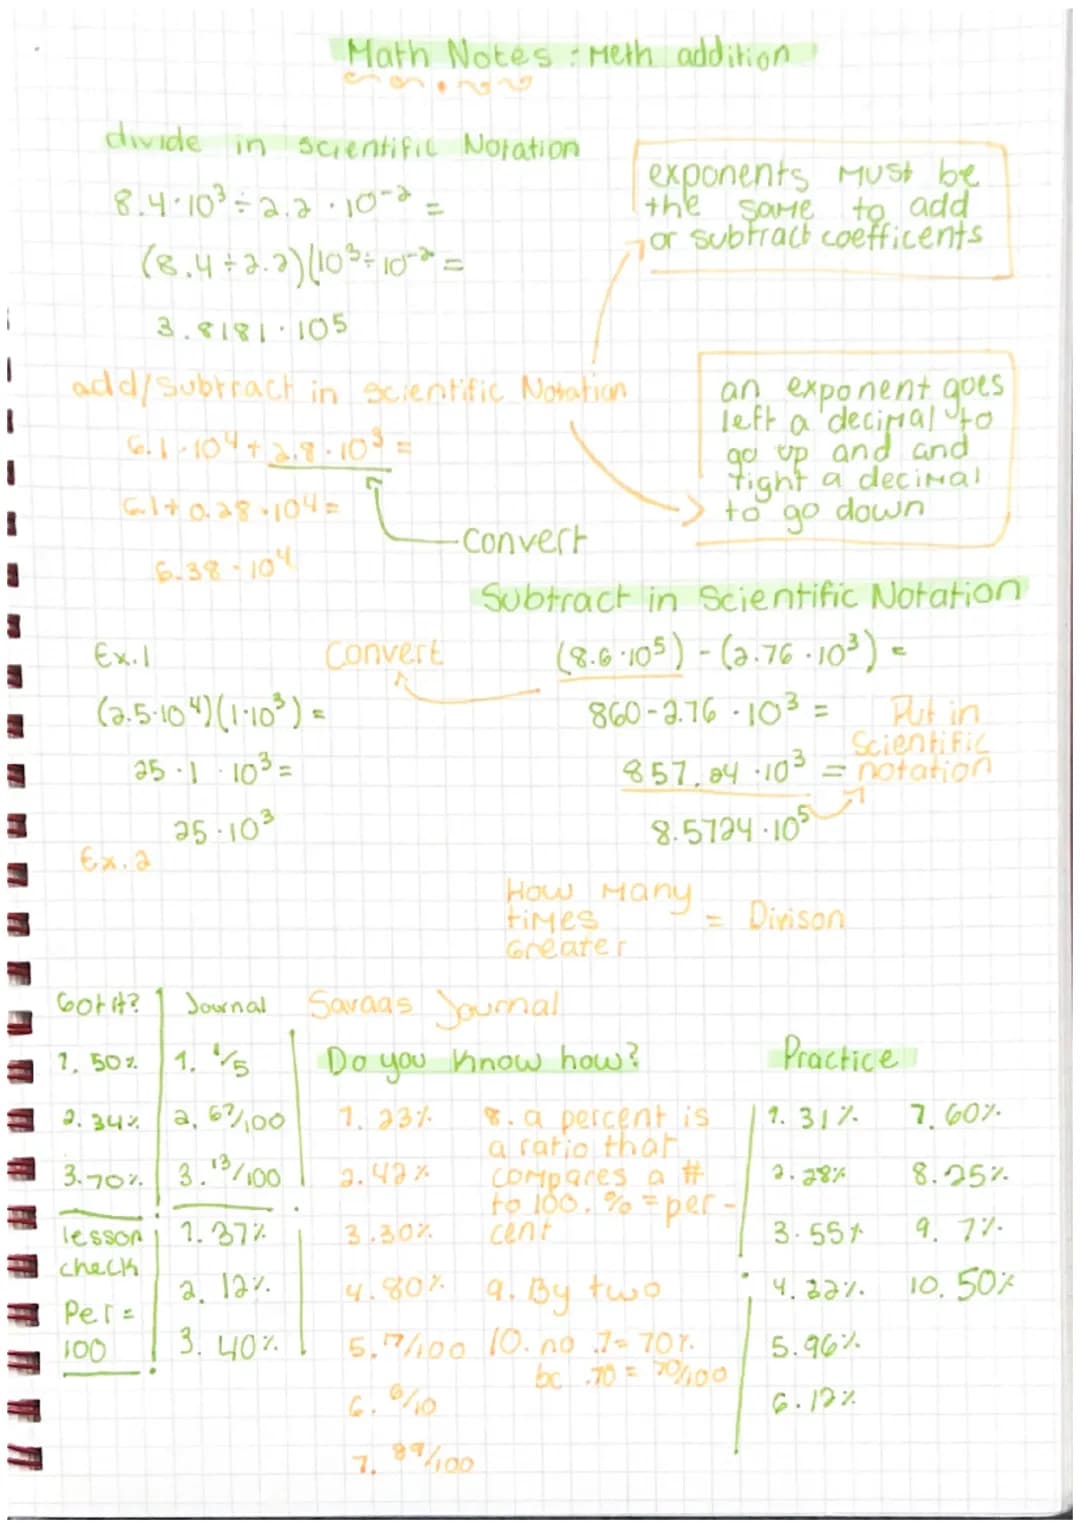 Math Notes : Meth addition
divide in scientific Notation
8.4·10³ ÷ 2.2 · 10⁻² =
(8.4 ÷ 2.2)(10³ ÷ 10⁻² =
3.8181 · 10⁵
exponents MUSt be
the same to add
or subtract coefficents
add/subtract in scientific Notation
6.1 · 10⁴ + 2.8 · 10³ =
6.1 + 0.28 · 10⁴ =
6.38 · 10⁴
convert
an exponent goes
left a decimal to
go up and and
right a decimal
to go down
Subtract in Scientific Notation
Ex.1
(2.5·10⁴)(1·10³) =
25 · 1 · 10³ =
25 · 10³
Ex. 2
Convert
(8.6 · 10⁵) - (2.76 · 10³) =
860 - 2.76 · 10³ =
857.24 · 10³ =
8.5724 · 10⁵
Put in
Scientific
notation
How Many
times
Greater
= Divison
Got it?
1. 50%
2. 34%
3. 70%
Journal
1. 1/5
2. 67/100
3. 13/100
lesson
check
Per =
100
1. 37%
2. 12%
3. 40%
Savaas Journal
Do you know how?
1. 23%
2. 42%
3. 30%
4. 80%
5. 17/100
6. 6/10
7. 89/100
8. a percent is
a ratio that
compares a #
to 100. % = per-
cent
9. By two
10. no .7 = 70%
bc .70 = 70/100
Practice
1. 31%
2. 28%
3. 55%
4. 22%
5. 96%
6. 12%
7. 60%
8. 25%
9. 7%
10. 50%